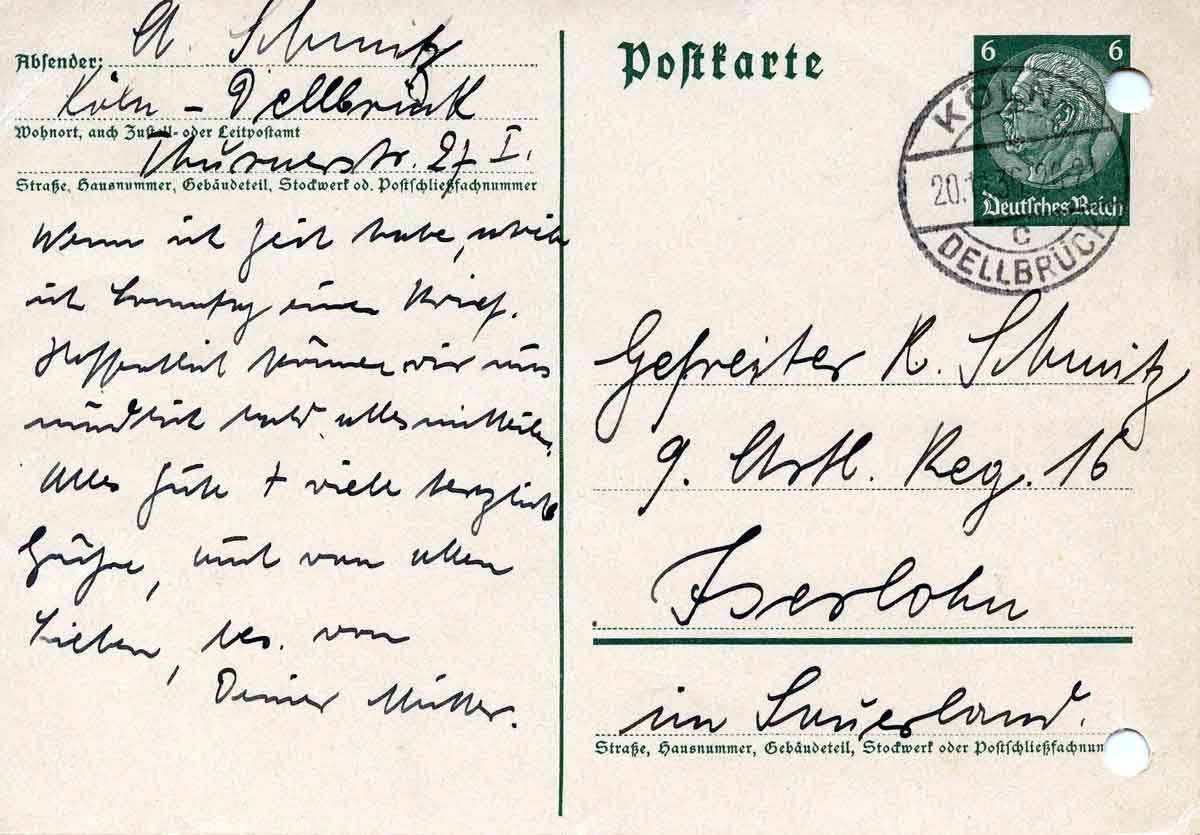 Absender: A. Schmitz
Köln - Dellbrück
Wohnort, auch Zustell- oder Leitpostamt
Thurnerstr. 27 I.
Straße, Hausnummer, Gebäudeteil, Stockwerk od. Postschließfachnummer
Wenn ich Zeit habe, schreibe
ich Sonntag einen Brief.
Hoffentlich können wir uns
mündlich bald alles mitteilen.
Alles Gute + viele herzliche
Grüße, auch von allen
Lieben, bes. von
Deiner Mutter.
Postkarte
6 6
Deutsches Reich
KÖLN
20.
C
DELLBRÜCK
Gefreiter K. Schmitz
9. Artl. Reg. 16
Iserlohn
im Sauerland.
Straße, Hausnummer, Gebäudeteil, Stockwerk oder Postschließfachnum